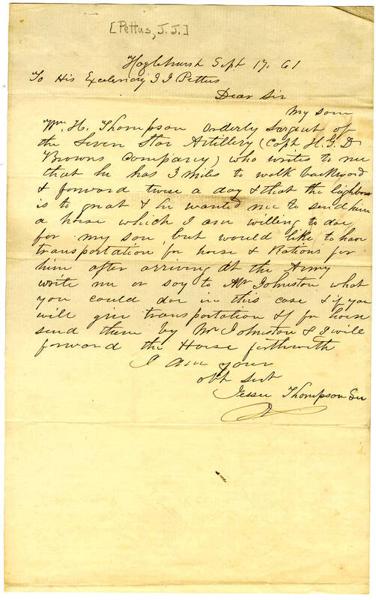 [Pettus, J.J.]
Hazlehurst Sept 17. 61
To His Excelency J J Pettus
Dear Sir
My son
Wm. H. Thompson Orderly Sargent of
the Seven Star Artillery (Capt H. G. D
Browns Company) who writes to me
that he has 3 miles to walk backward
& forward twice a day & that the
is to great & he wanted me to send him
a horse which I am willing to doe
for my son, but would like to have
transportation for horse & Rations for
him after arriving at the Army
write me or say to Mr Johnston what
you could doe in this case & if you
will give transportation & for horse
send them by Mr Johnston & I will
forward the Horse forthwith
I am your
obt Svt
Jesse Thompson Sr